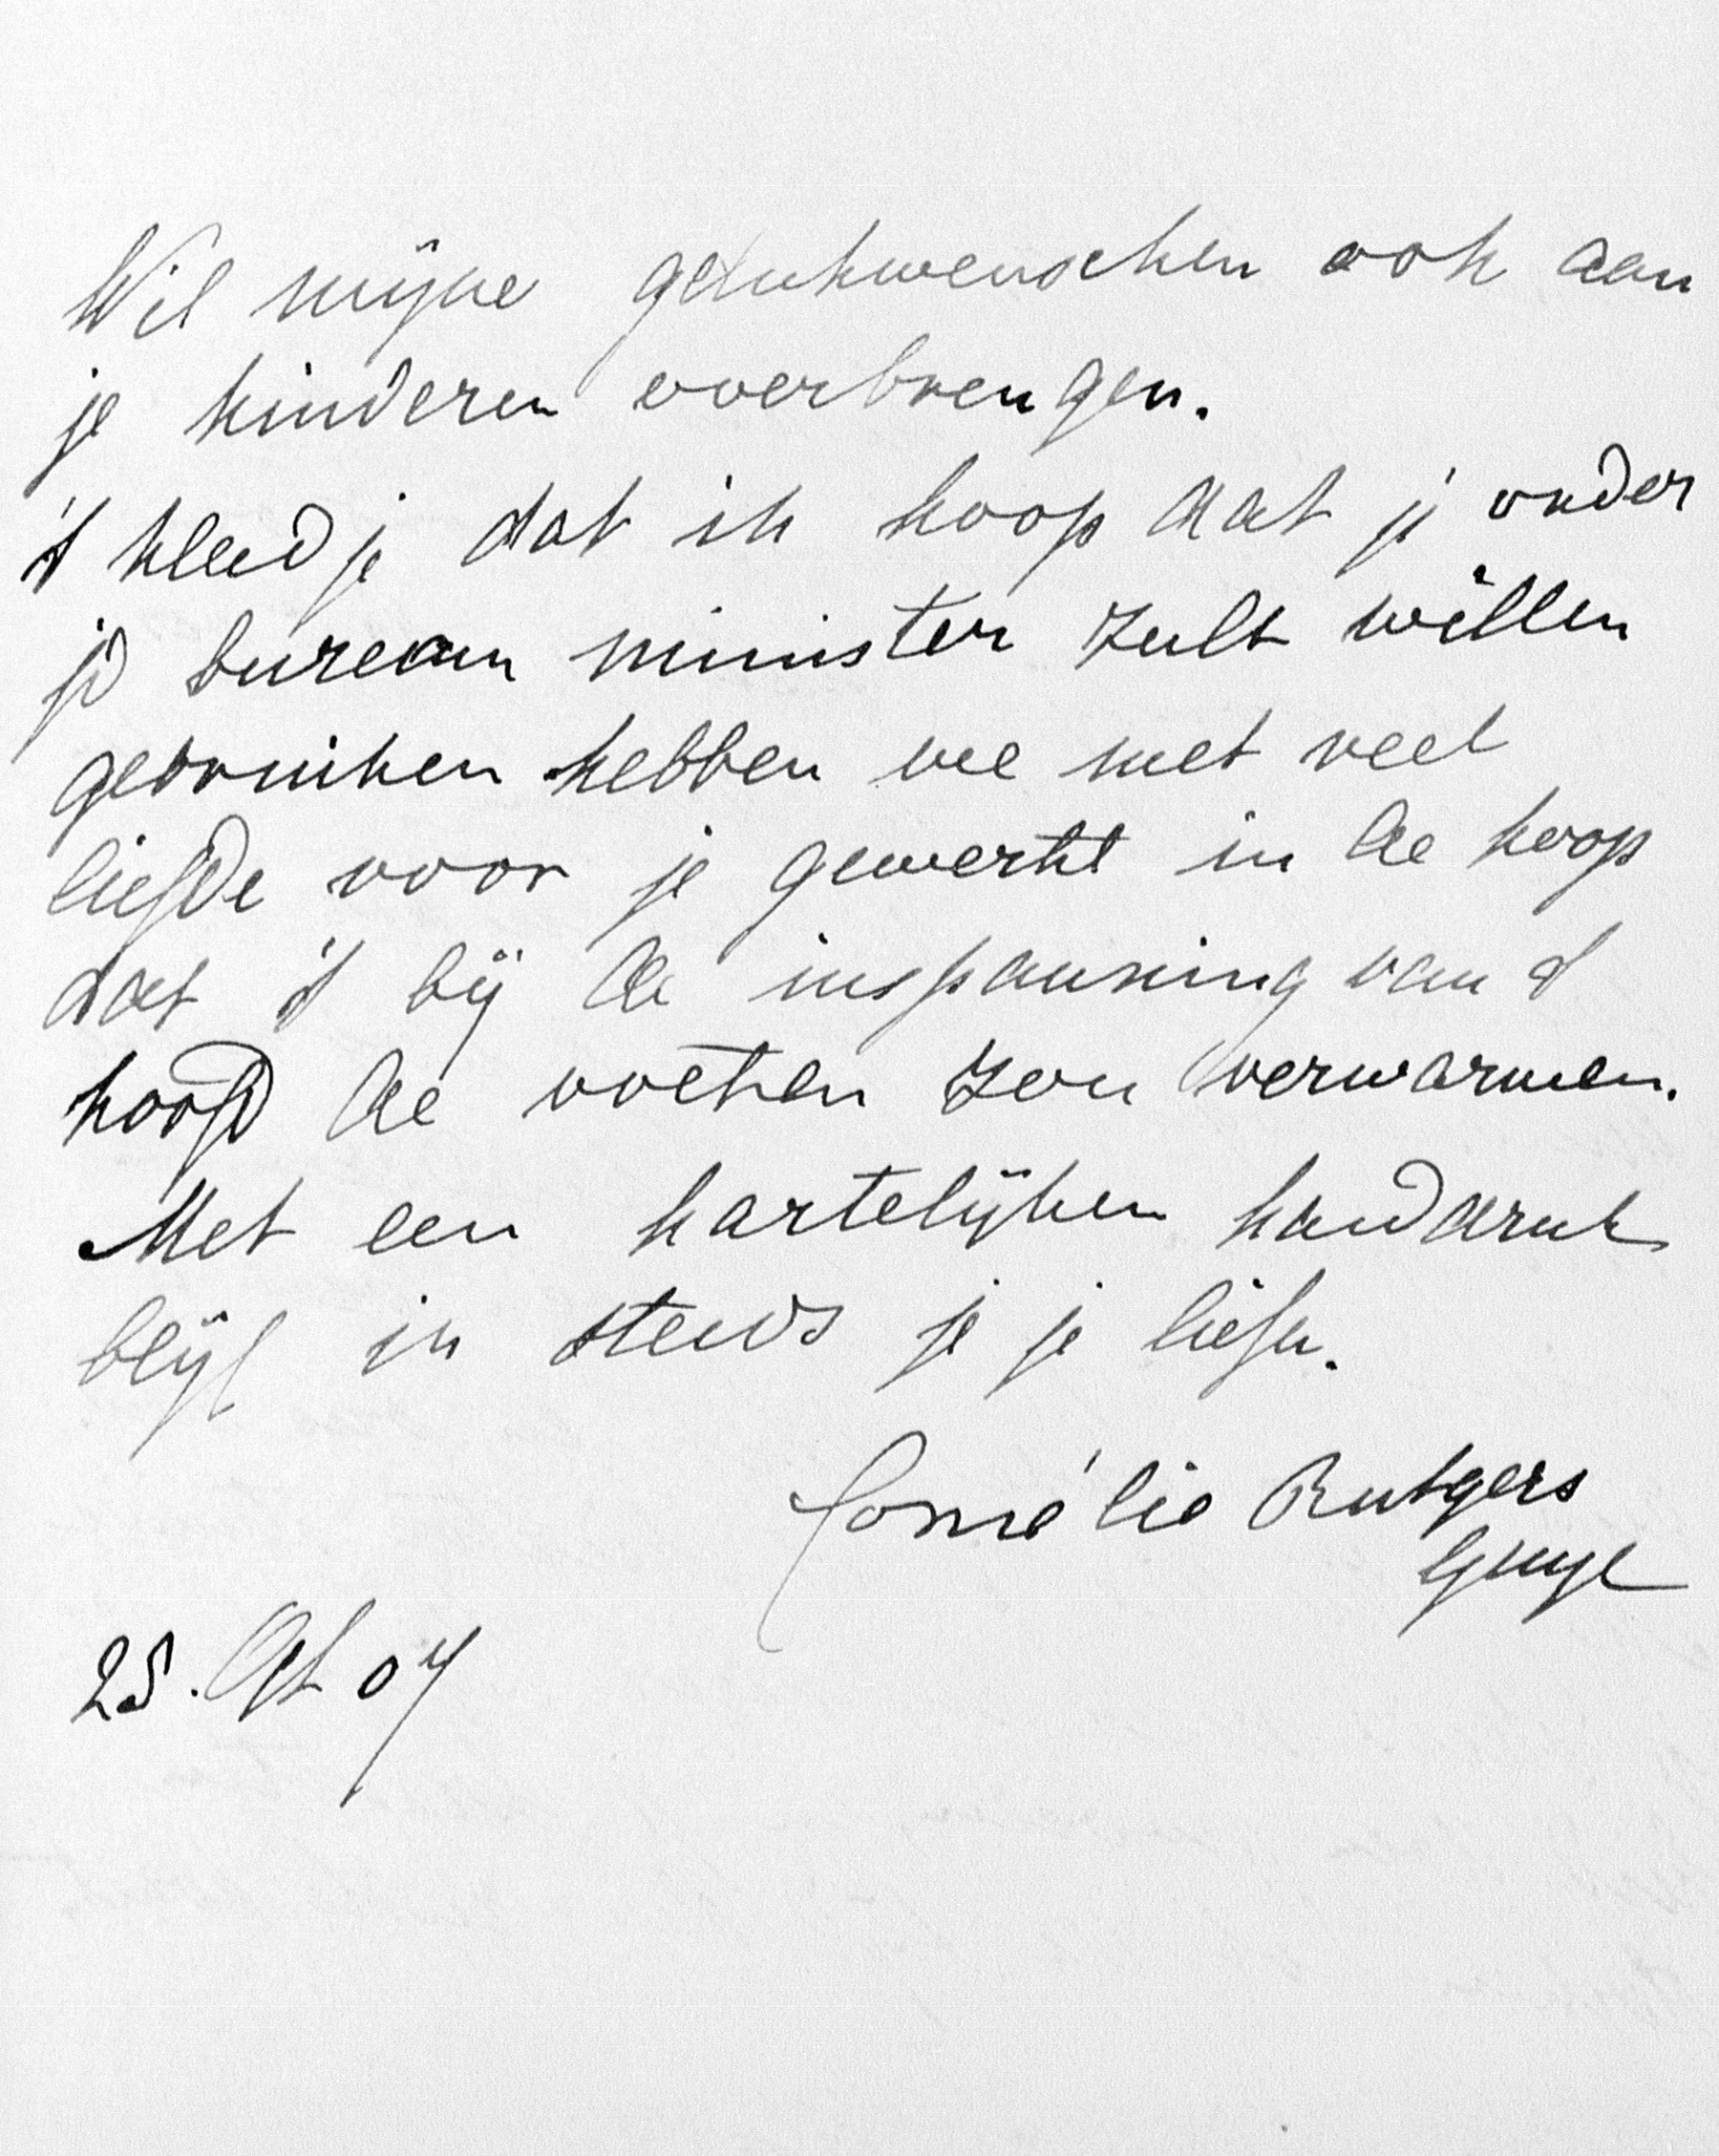 Wil mijne gelukwenschen ook aan
je kinderen overbrengen.
't kleedje dat ik hoop dat je onder
je bureau minister zult willen
gebruiken hebben we met veel
liefde voor je gewerkt in de hoop
dat 't bij de inspanning van 't
hoofd de voeten zou verwarmen.
Met een hartelijken handdruk
blijf ik steeds je je liefh.
Cornélie Rutgers
Guye
25. Oct 07